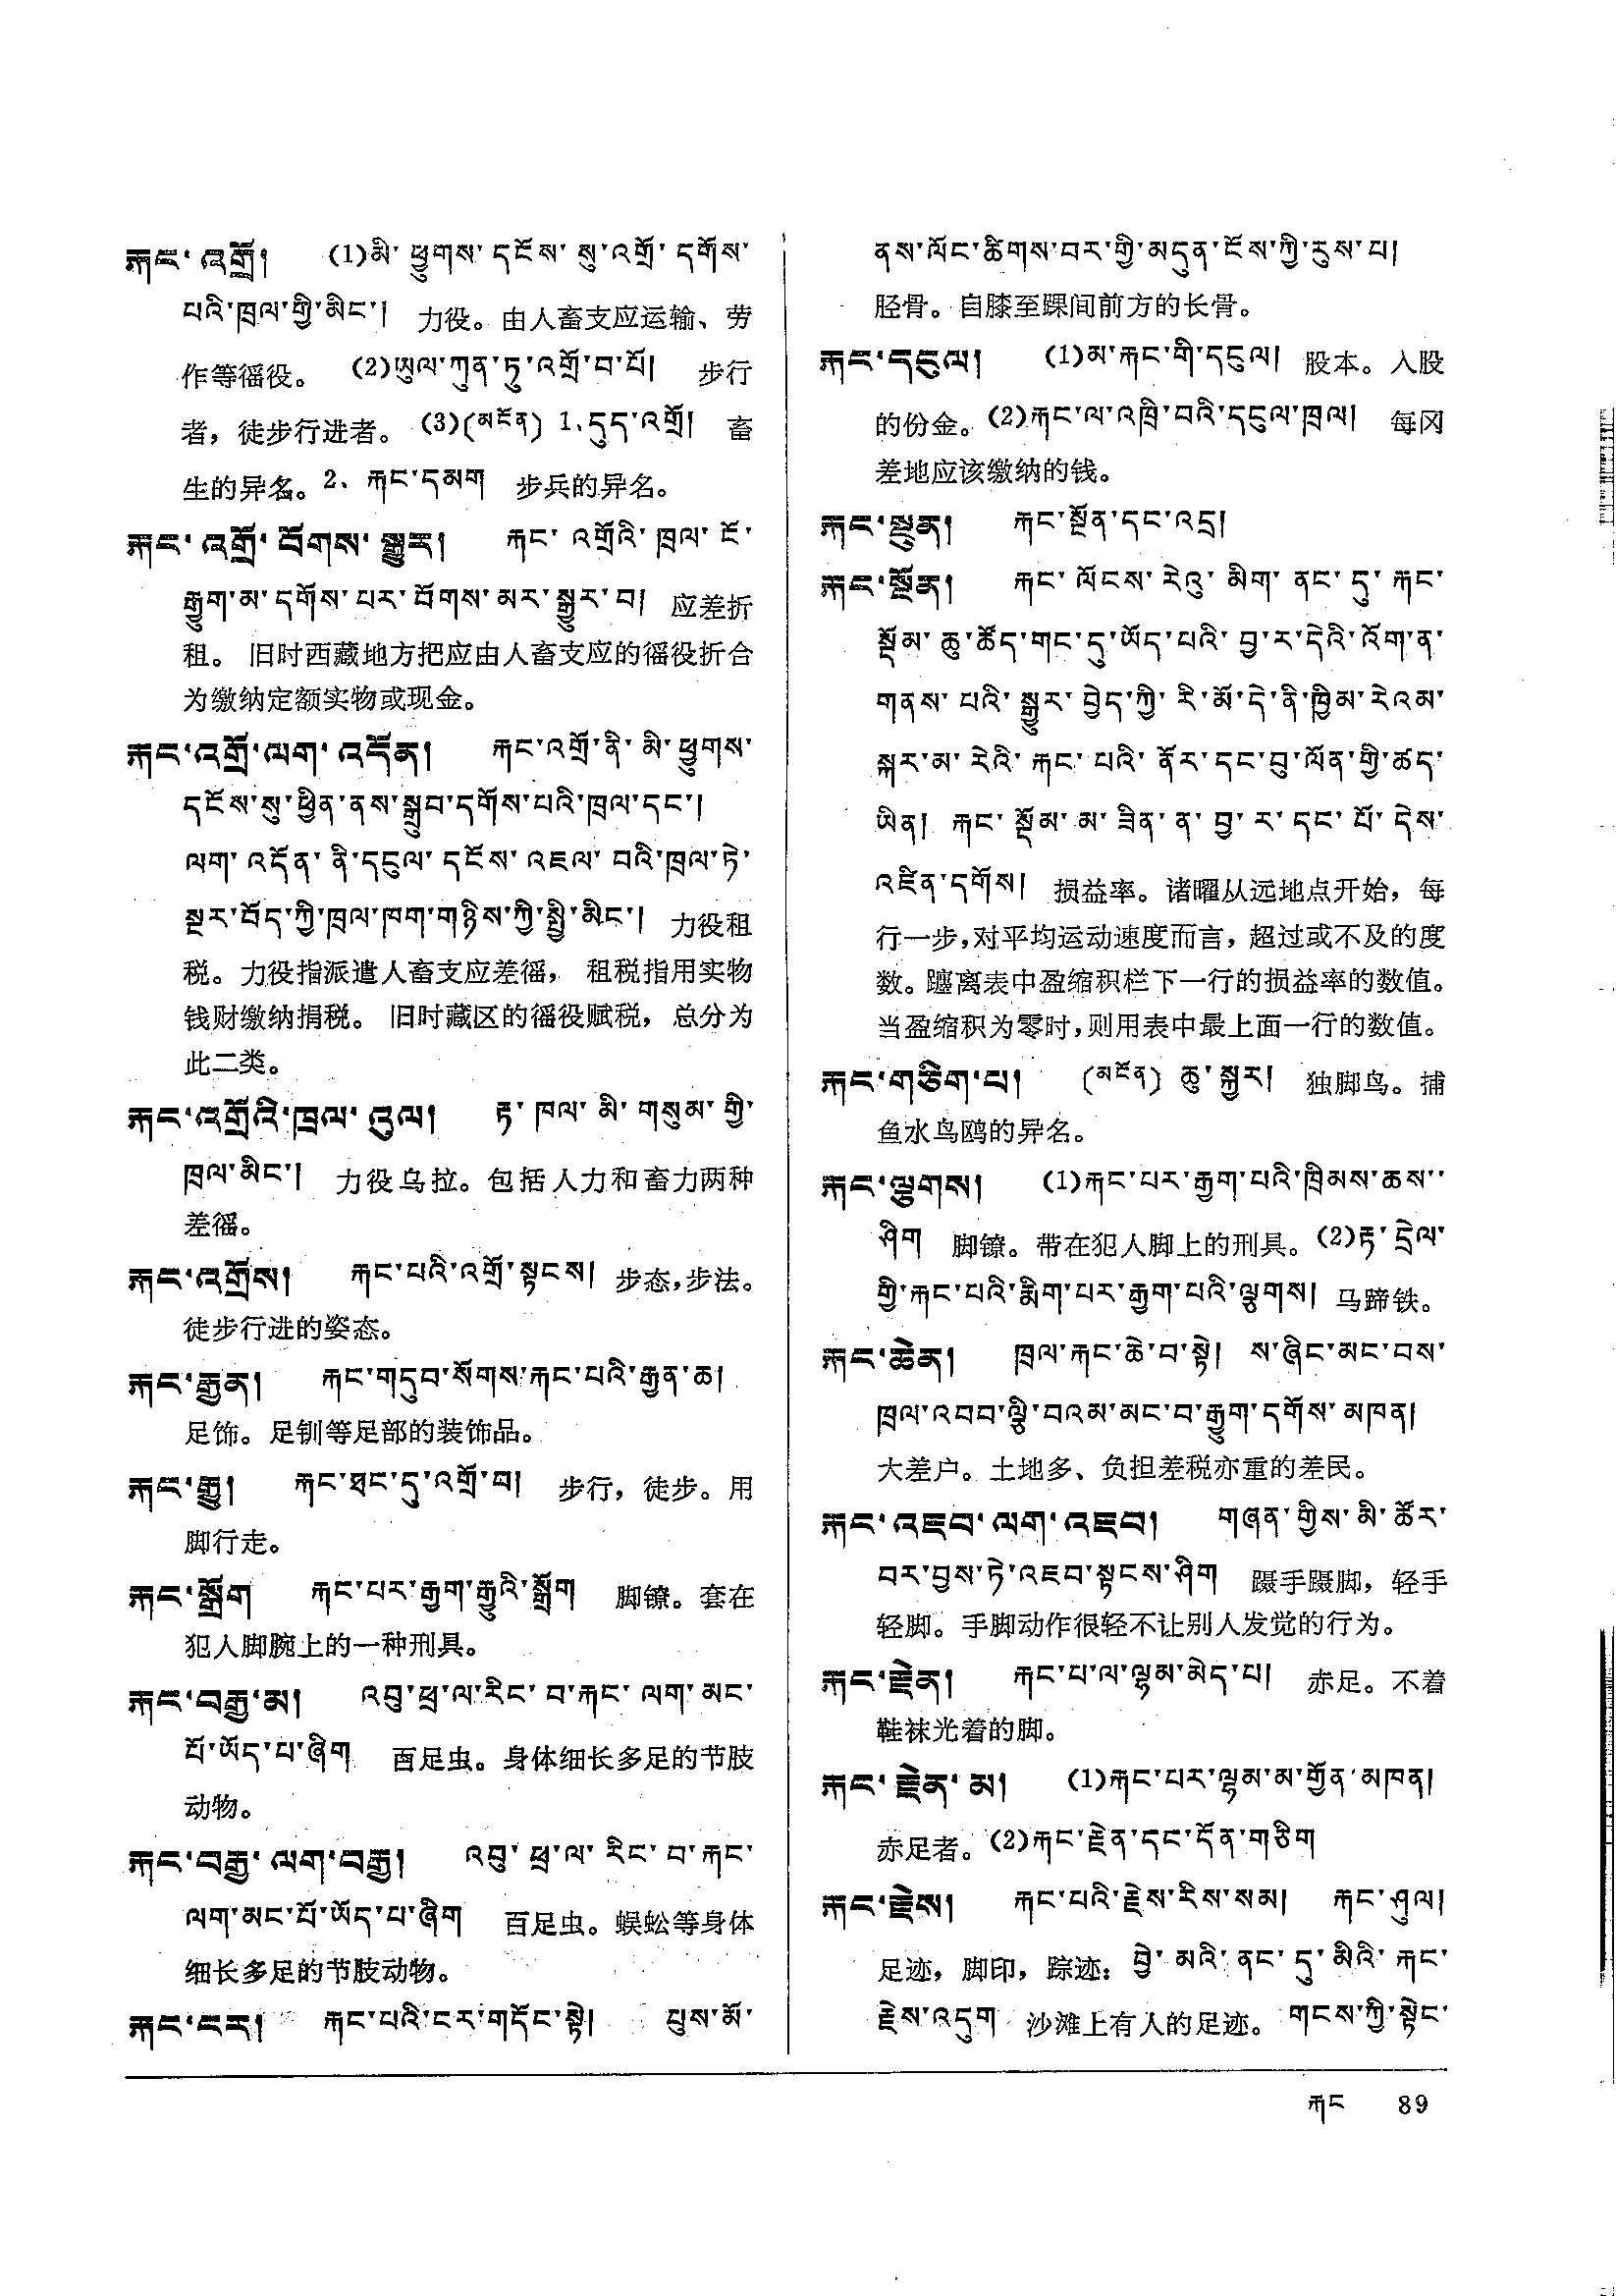 རྐང་འགྲོ། (1)མི་ཕྱུགས་དངོས་སུ་འགྲོ་དགོས་
པའི་ཁྲལ་གྱི་མིང་། 力役。由人畜支应运输、劳
作等徭役。 (2)ཡུལ་ཀུན་ཏུ་འགྲོ་བ་པོ། 步行
者，徒步行进者。(3)(མངོན) 1.དུད་འགྲོ། 畜
生的异名。2、རྐང་དམག 步兵的异名。
རྐང་འགྲོ་བོགས་སྒྱུར། རྐང་འགྲོའི་ཁྲལ་ངོ་
རྒྱུག་མ་དགོས་པར་བོགས་མར་སྒྱུར་བ། 应差折
租。 旧时西藏地方把应由人畜支应的徭役折合
为缴纳定额实物或现金。
རྐང་འགྲོ་ལག་འདོན། རྐང་འགྲོ་ནི་མི་ཕྱུགས་
དངོས་སུ་ཕྱིན་ནས་སྒྲུབ་དགོས་པའི་ཁྲལ་དང་།
ལག་འདོན་ནི་དངུལ་དངོས་འཇལ་བའི་ཁྲལ་ཏེ་
སྔར་བོད་ཀྱི་ཁྲལ་ཁག་གཉིས་ཀྱི་སྤྱི་མིང་། 力役租
税。力役指派遣人畜支应差徭， 租税指用实物
钱财缴纳捐税。 旧时藏区的徭役赋税，总分为
此二类。
རྐང་འགྲོའི་ཁྲལ་འུལ། རྟ་ཁལ་མི་གསུམ་གྱི་
ཁྲལ་མིང་། 力役乌拉。包括人力和畜力两种
差徭。
རྐང་འགྲོས། རྐང་པའི་འགྲོ་སྟངས། 步态，步法。
徒步行进的姿态。
རྐང་རྒྱན། རྐང་གདུབ་སོགས་རྐང་པའི་རྒྱན་ཆ།
足饰。足钏等足部的装饰品。
རྐང་རྒྱུ། རྐང་ཐང་དུ་འགྲོ་བ། 步行，徒步。用
脚行走。
རྐང་སྒྲོག རྐང་པར་རྒྱག་རྒྱུའི་སྒྲོག 脚镣。套在
犯人脚腕上的一种刑具。
རྐང་བརྒྱ་མ། འབུ་ཕྲ་ལ་རིང་བ་རྐང་ལག་མང་
པོ་ཡོད་པ་ཞིག 百足虫。身体细长多足的节肢
动物。
རྐང་བརྒྱ་ལག་བརྒྱ། འབུ་ཕྲ་ལ་རིང་བ་རྐང་
ལག་མང་པོ་ཡོད་པ་ཞིག 百足虫。蜈蚣等身体
细长多足的节肢动物。
རྐང་ངར། རྐང་པའི་ངར་གདོང་སྟེ། པུས་མོ་
ནས་ལོང་ཚིགས་བར་གྱི་མདུན་ངོས་ཀྱི་རུས་པ།
胫骨。自膝至踝间前方的长骨。
རྐང་དངུལ། (1)མ་རྐང་གི་དངུལ། 股本。入股
的份金。(2)རྐང་ལ་འཁྲི་བའི་དངུལ་ཁྲལ། 每冈
差地应该缴纳的钱。
རྐང་སྔུན། རྐང་སྔོན་དང་འདྲ།
རྐང་སྔོན། རྐང་ལོངས་རེའུ་མིག་ནང་དུ་རྐང་
སྡོམ་ཆུ་ཚོད་གང་དུ་ཡོད་པའི་བྱ་ར་དེའི་འོག་ན་
གནས་པའི་སྒྱུར་བྱེད་ཀྱི་རི་མོ་དེ་ནི་ཁྱིམ་རེའམ་
སྐར་མ་རེའི་རྐང་པའི་ནོར་དང་བུ་ལོན་གྱི་ཚད་
ཡིན། རྐང་སྡོམ་མ་ཟིན་ན་བྱ་ར་དང་པོ་དེས་
འཛིན་དགོས། 损益率。诸曜从远地点开始，每
行一步，对平均运动速度而言，超过或不及的度
数。躔离表中盈缩积栏下一行的损益率的数值。
当盈缩积为零时，则用表中最上面一行的数值。
རྐང་གཅིག་པ། (མངོན) ཆུ་སྐྱར། 独脚鸟。捕
鱼水鸟鸥的异名。
རྐང་ལྕགས། (1)རྐང་པར་རྒྱག་པའི་ཁྲིམས་ཆས་
ཤིག 脚镣。带在犯人脚上的刑具。(2)རྟ་དྲེལ་
གྱི་རྐང་པའི་རྨིག་པར་རྒྱག་པའི་ལྕགས། 马蹄铁。
རྐང་ཆེན། ཁྲལ་རྐང་ཆེ་བ་སྟེ། ས་ཞིང་མང་བས་
ཁྲལ་འབབ་ལྕི་བའམ་མང་བ་རྒྱུག་དགོས་མཁན།
大差户。土地多、负担差税亦重的差民。
རྐང་འཇབ་ལག་འཇབ། གཞན་གྱིས་མི་ཚོར་
བར་བྱས་ཏེ་འཇབ་སྟངས་ཤིག 蹑手蹑脚，轻手
轻脚。手脚动作很轻不让别人发觉的行为。
རྐང་རྗེན། རྐང་པ་ལ་ལྷམ་མེད་པ། 赤足。不着
鞋袜光着的脚。
རྐང་རྗེན་མ། (1)རྐང་པར་ལྷམ་མ་གྱོན་མཁན།
赤足者。(2)རྐང་རྗེན་དང་དོན་གཅིག
རྐང་རྗེས། རྐང་པའི་རྗེས་རིས་སམ། རྐང་ཤུལ།
足迹，脚印，踪迹：བྱེ་མའི་ནང་དུ་མིའི་རྐང་
རྗེས་འདུག 沙滩上有人的足迹。གངས་ཀྱི་སྟེང་
རྐང 89